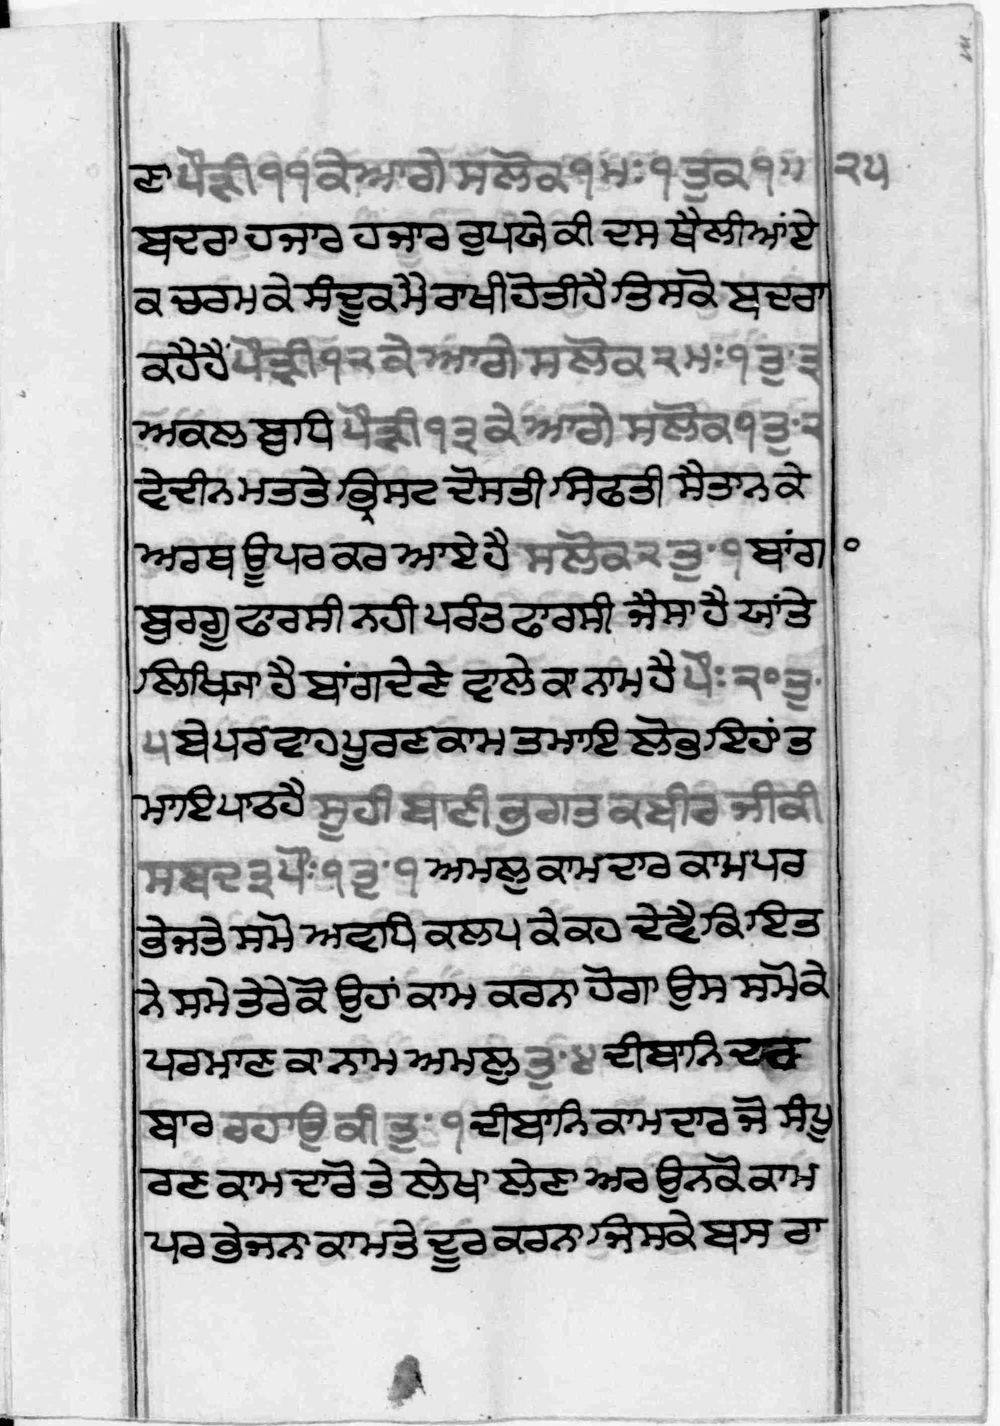 ਣਾ ਪੌੜੀ ੧੧ ਕੇ ਆਗੇ ਸਲੋਕ ੧ ਮਃ ੧ ਤੁਕ ੧॥ ੨੫
ਬਦਰਾ ਹਜਾਰ ਹਜਾਰ ਰੁਪਯੇ ਕੀ ਦਸ ਥੈਲੀਆਂ ਏ
ਕ ਚਰਮ ਕੇ ਸੰਦੂਕ ਮੈ ਰਾਖੀ ਹੋਤੀ ਹੈ ਤਿਸਕੋ ਬਦਰਾ
ਕਹੈਹੈਂ ਪੌੜੀ ੧੨ ਕੇ ਆਗੇ ਸਲੋਕ ੨ ਮਃ ੧ ਤੁ· ੩
ਅਕਲ ਬੁਧਿ ਪੌੜੀ ੧੩ ਕੇ ਆਗੇ ਸਲੋਕ ੧ ਤੁ· ੨
ਵੇਦੀਨ ਮਤਤੇ ਭ੍ਰਿਸਟ ਦੋਸਤੀ ਸਿਫਤੀ ਸੈਤਾਨ ਕੇ
ਅਰਥ ਊਪਰ ਕਰ ਆਏ ਹੈ ਸਲੋਕ ੨ ਤੁ· ੧ ਬਾਂਗ °
ਬੁਰਗੂ ਫਾਰਸੀ ਨਹੀ ਪਰੰਤ ਫਾਰਸੀ ਜੈਸਾ ਹੈ ਯਾਂਤੇ
ਲਿਖਿਆ ਹੈ ਬਾਂਗ ਦੇਣੇ ਵਾਲੇ ਕਾ ਨਾਮ ਹੈ ਪੌਃ ੨੦ ਤੁ·
੫ ਬੇਪਰਵਾਹ ਪੂਰਣ ਕਾਮ ਤਮਾਇ ਲੋਭੁ ਇਹਾਂ ਤ
ਮਾਇ ਪਾਠ ਹੈ ਸੂਹੀ ਬਾਣੀ ਭਗਤ ਕਬੀਰ ਜੀ ਕੀ
ਸਬਦ ੩ ਪੌਃ ੧ ਤੁ· ੧ ਅਮਲੁ ਕਾਮਦਾਰ ਕਾਮ ਪਰ
ਭੇਜਤੇ ਸਮੇ ਅਵਧਿ ਕਲਪ ਕੇ ਕਹ ਦੇਵੈ ਕਿ ਇਤ
ਨੇ ਸਮੇ ਤੇਰੇ ਕੋ ਉਹਾਂ ਕਾਮ ਕਰਨਾ ਹੋਗਾ ਉਸ ਸਮੇ ਕੇ
ਪਰਮਾਣ ਕਾ ਨਾਮ ਅਮਲੁ ਤੁ· ੪ ਦੀਬਾਨਿ ਦਰ
ਬਾਰ ਰਹਾਉ ਕੀ ਤੁ· ੧ ਦੀਬਾਨਿ ਕਾਮਦਾਰ ਜੋ ਸੰਪੂ
ਰਣ ਕਾਮਦਾਰੋ ਤੇ ਲੇਖਾ ਲੇਣਾ ਅਰ ਉਨਕੋ ਕਾਮ
ਪਰ ਭੇਜਨਾ ਕਾਮਤੇ ਦੂਰ ਕਰਨਾ ਜਿਸਕੇ ਬਸ ਰਾ